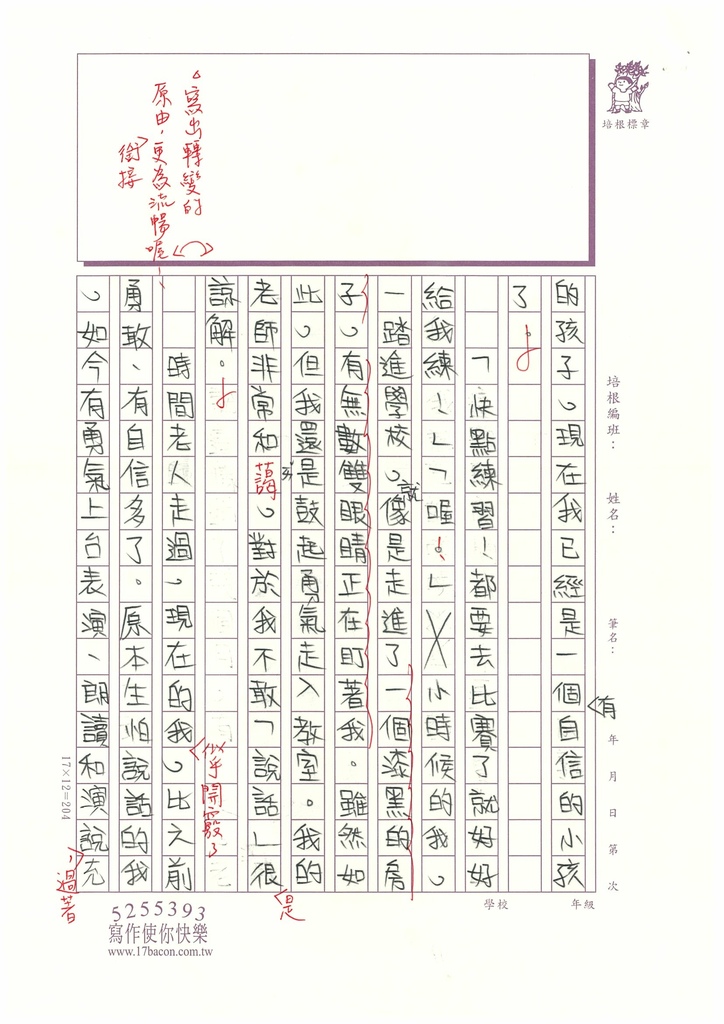 。寫出轉變的
原由，更為流暢喔！
銜接
培根標章
培根編班：
姓名：
筆名：
年 月 日 第 次
學校
年級
的孩子，現在我已經是一個自信的小孩
有
了。
「快點練習！都要去比賽了就好好
給我練！」「喔！」小時候的我，
一踏進學校，像是走進了一個漆黑的房
就
子，有無數雙眼睛正在盯著我。雖然如
此，但我還是鼓起勇氣走入教室。我的
老師非常和藹，對於我不敢「說話」很
是
諒解。
時間老人走過，現在的我，比之前
似乎開竅了
勇敢、有自信多了。原本生怕說話的我
，如今有勇氣上台表演、朗讀和演說充
，過著
17×12=204
5255393
寫作使你快樂
www.17bacon.com.tw